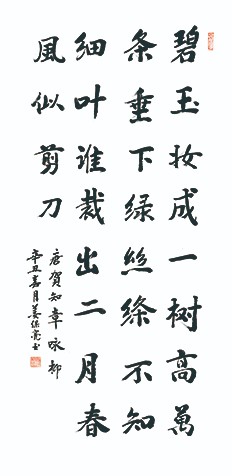 碧玉妆成一树高萬
条垂下绿丝绦不知
细叶谁裁出二月春
風似剪刀
唐賀知章咏柳
辛丑嘉月姜亮书